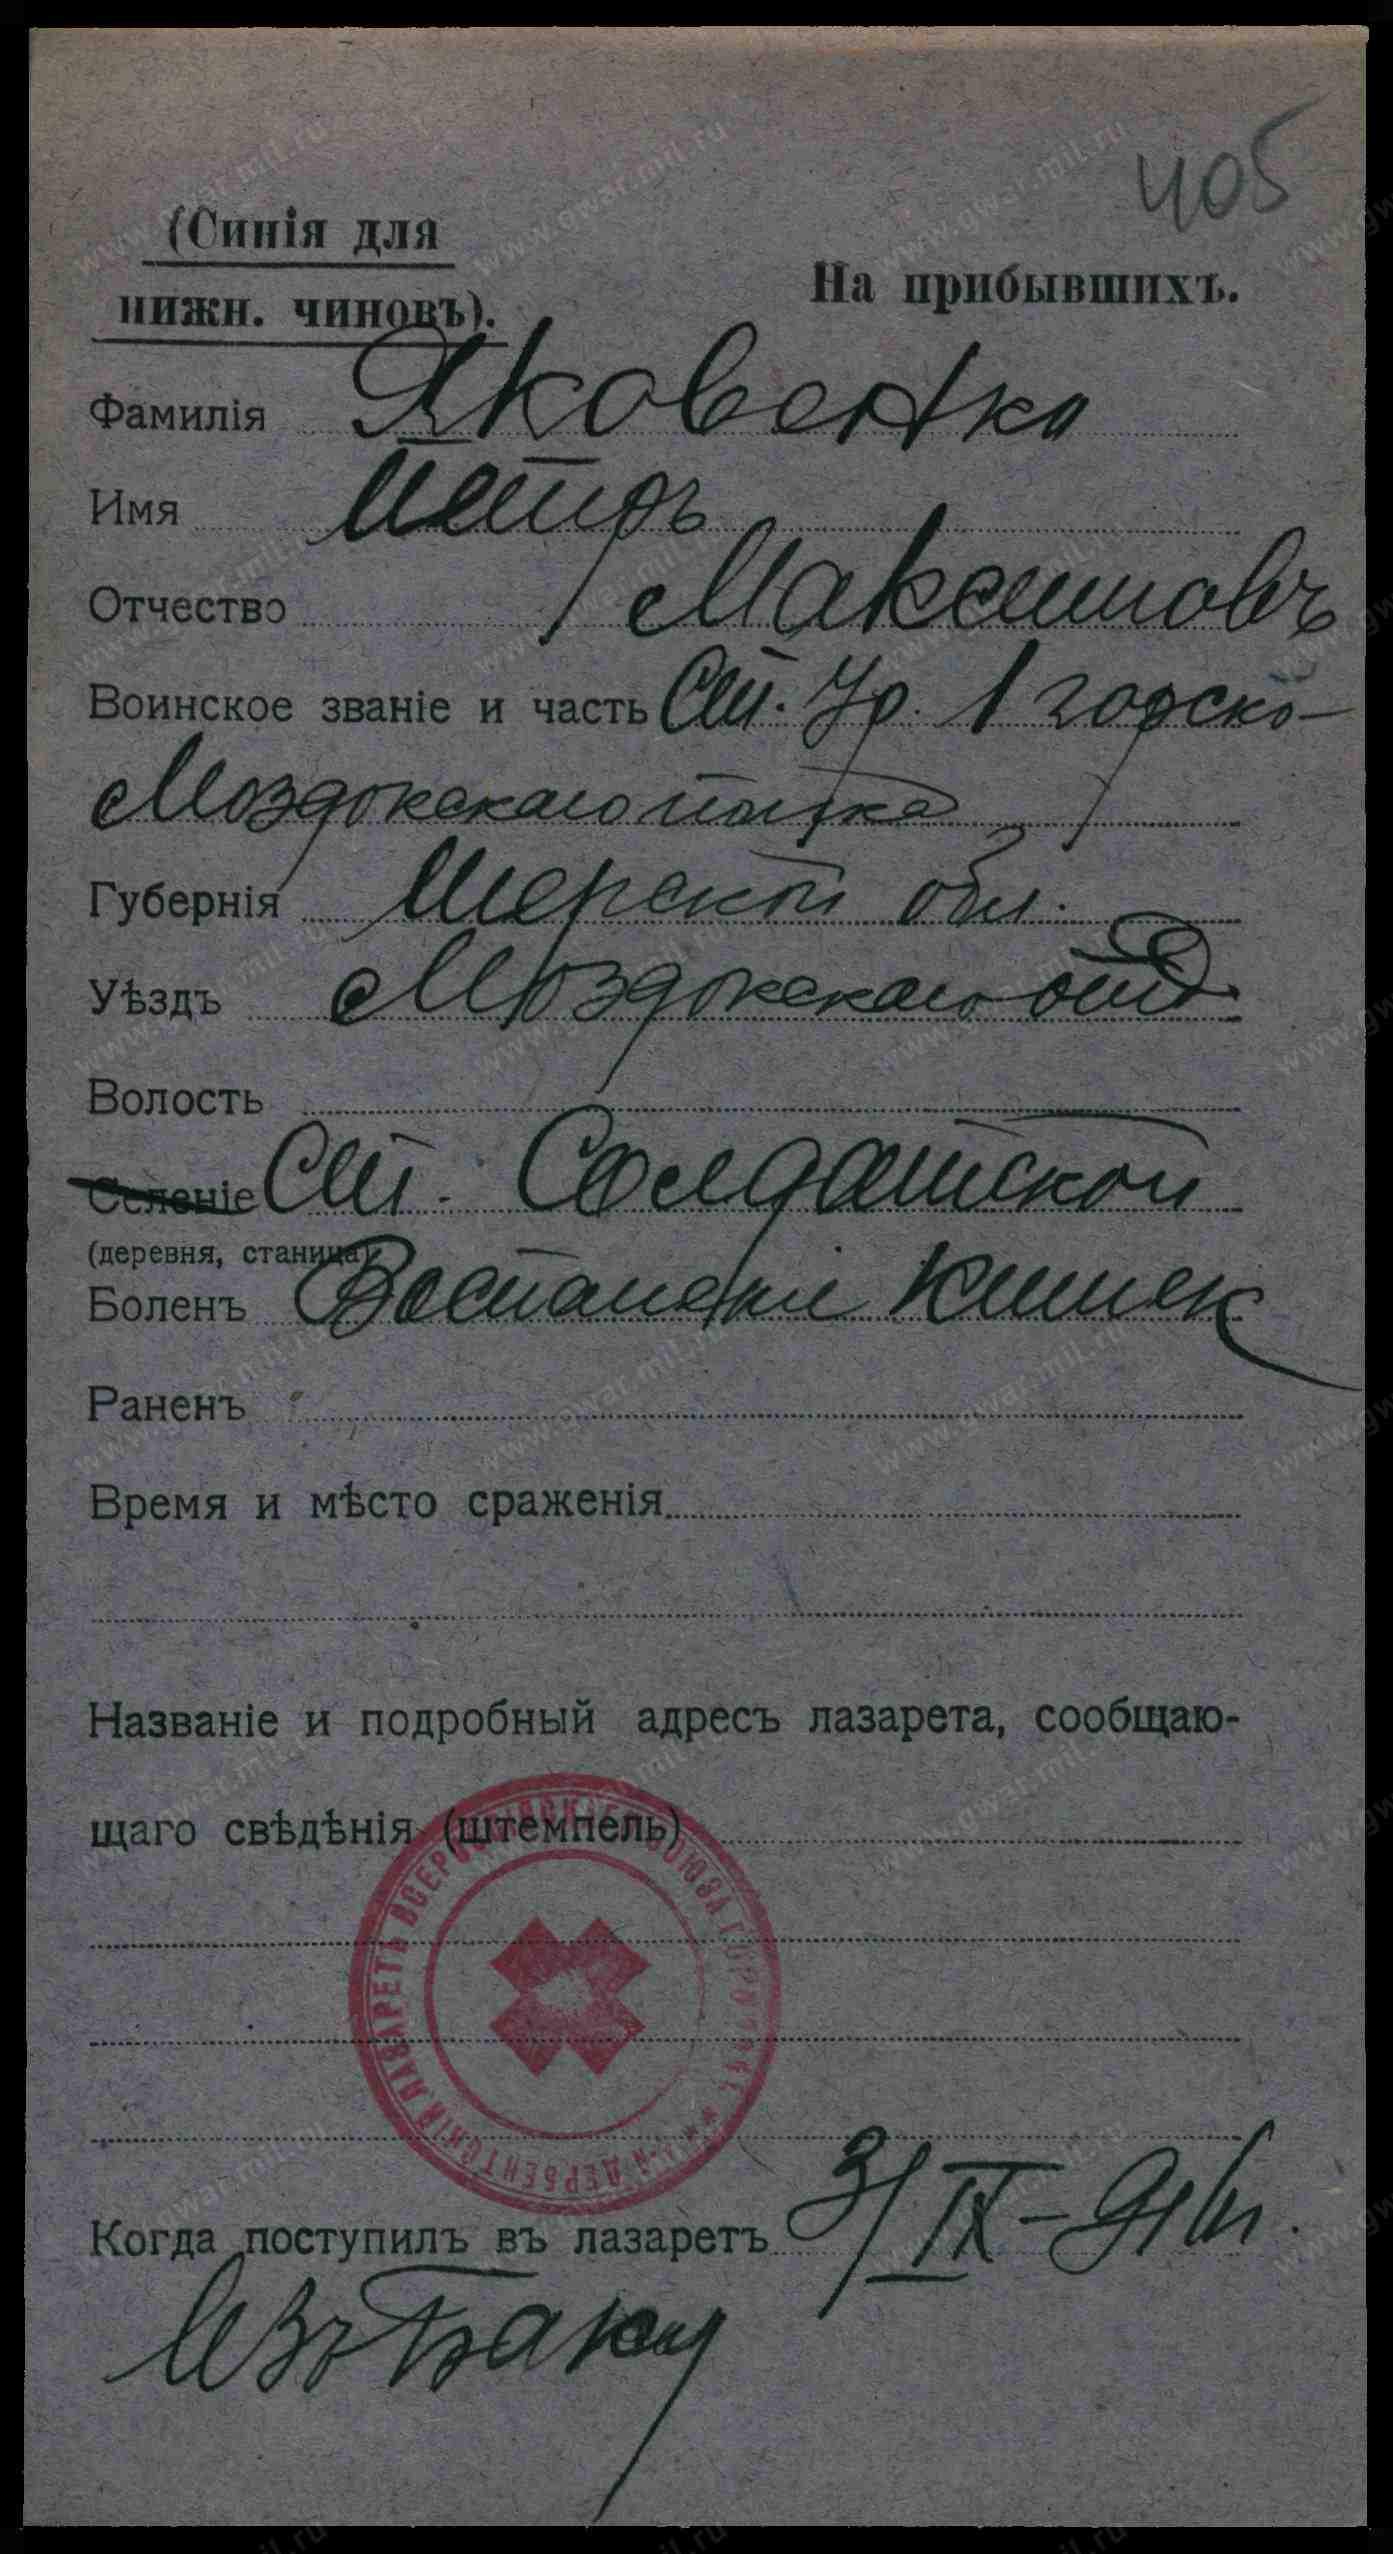 405
(Синія для
нижн. чиновъ).
На прибывшихъ.
Фамилія Яковенко
Имя Петръ
Отчество Максимовъ
Воинское званіе и часть Ст. Ур. 1 горско-
Моздокскаго полка
Губернія Терской обл.
Уѣздъ Моздокскаго отд
Волость
Селеніе Ст. Солдатской
(деревня, станица)
Боленъ Воспаленіи Кишек
Раненъ
Время и мѣсто сраженія
Названіе и подробный адресъ лазарета, сообщаю-
щаго свѣдѣнія (штемпель)
ДЕРБЕНТСКІЙ ЛАЗАРЕТЪ ВСЕРОССІЙСКАГО СОЮЗА ГОРОДОВЪ
Когда поступилъ въ лазаретъ 3/IX-
Изъ Баку